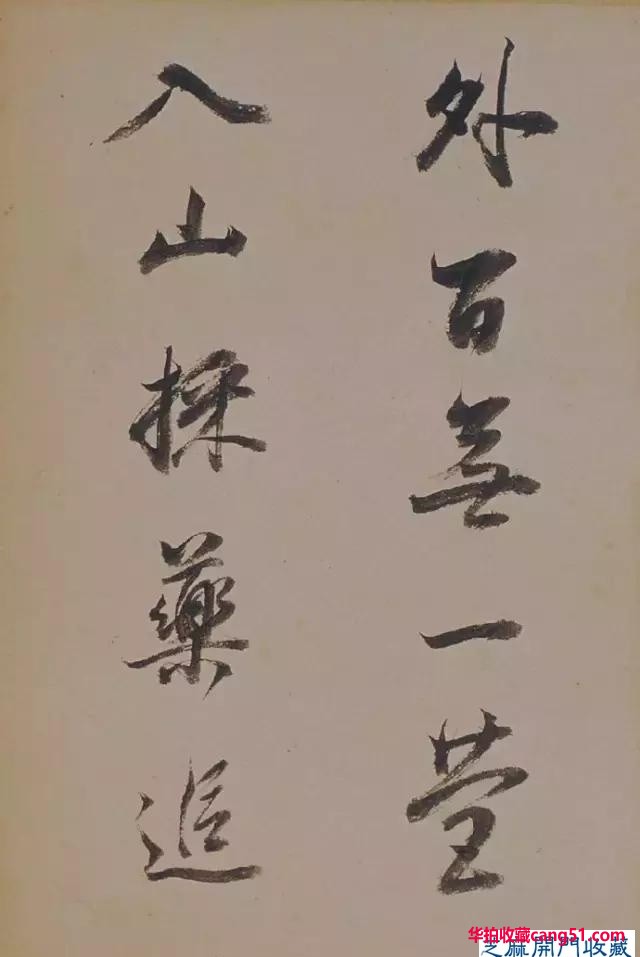 外百無一營
入山採藥追
华拍收藏cang51.com
芝麻開門收藏